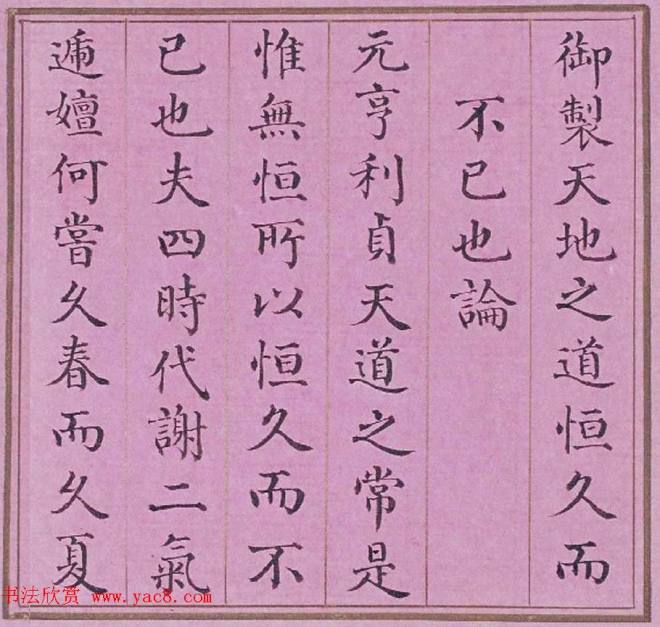 御製天地之道恒久而
不已也論
元亨利貞天道之常是
惟無恒所以恒久而不
已也夫四時代謝二氣
遞嬗何嘗久春而久夏
书法欣赏 www.yac8.com